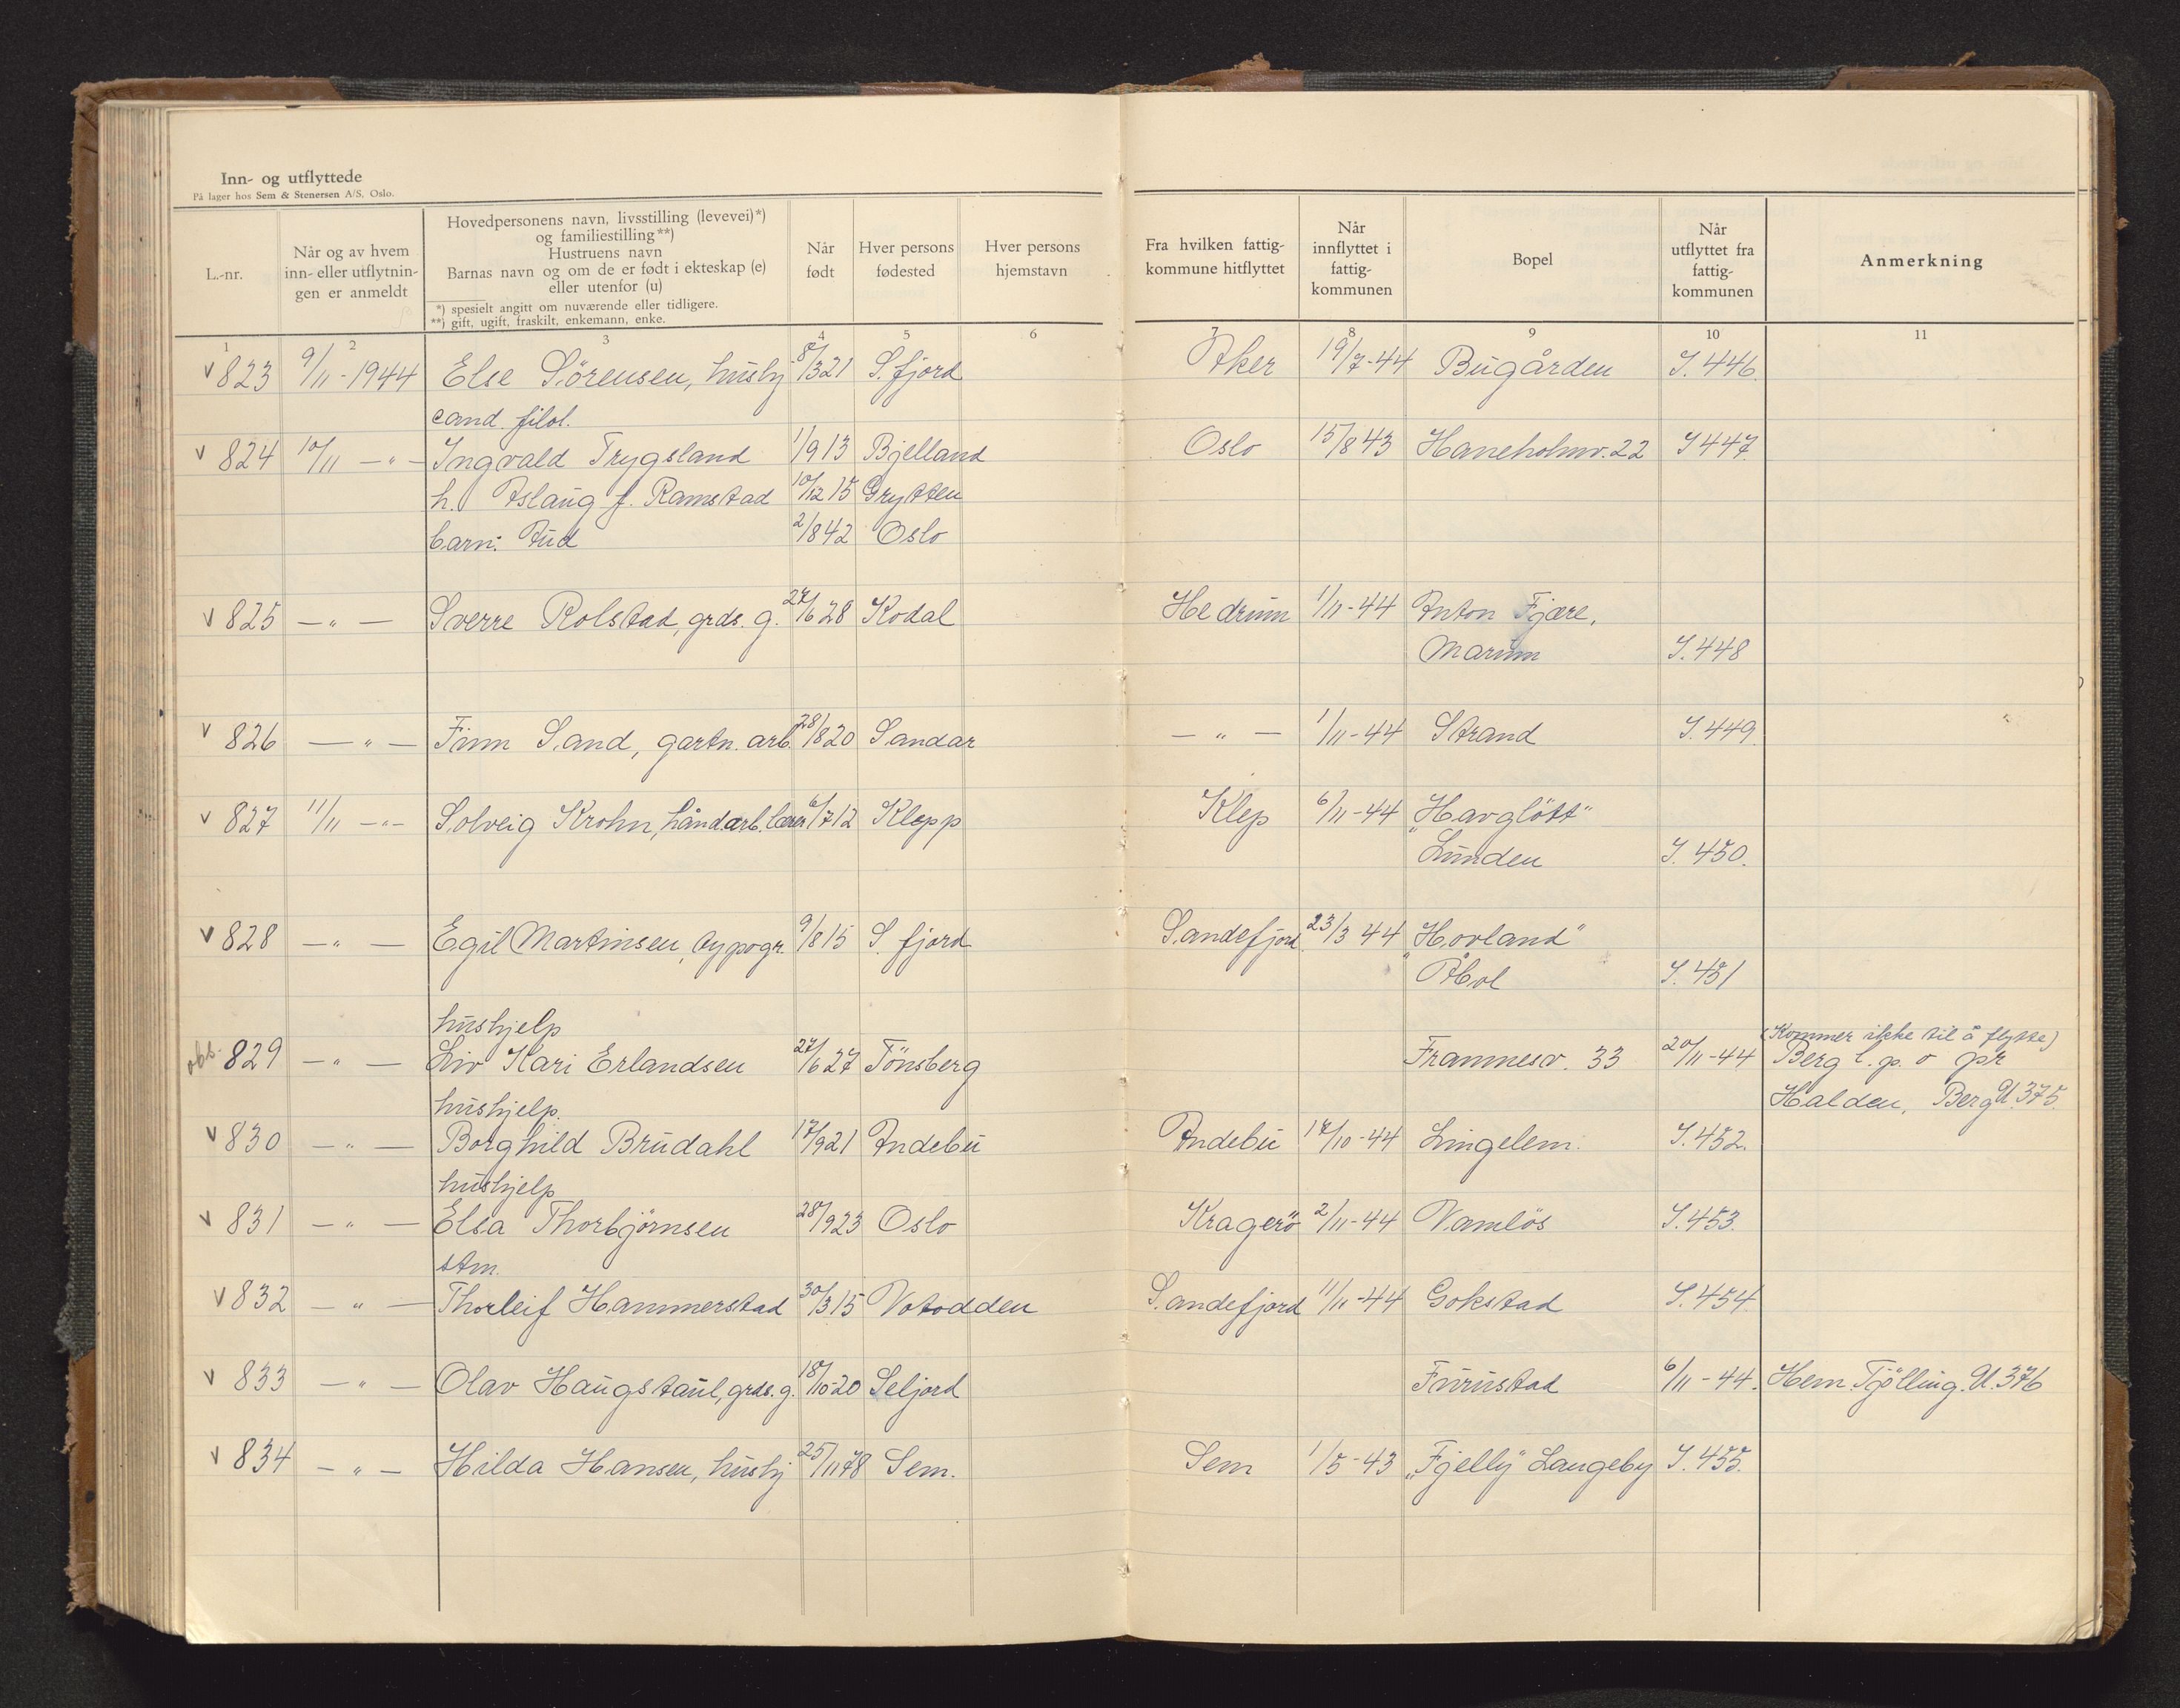 Inn- og utflyttede
På lager hos Sem & Stenersen A/S, Oslo.
L.-nr.
Når og av hvem
inn- eller utflytnin-
gen er anmeldt
Hovedpersonens navn, livsstilling (levevei)*)
og familiestilling**)
Hustruens navn
Barnas navn og om de er født i ekteskap (e)
eller utenfor (u)
*) spesielt angitt om nuværende eller tidligere.
**) gift, ugift, fraskilt, enkemann, enke.
Når
født
Hver persons
fødested
Hver persons
hjemstavn
Fra hvilken fattig-
kommune hitflyttet
Når
innflyttet i
fattig-
kommunen
Bopel
Når
utflyttet fra
fattig-
kommunen
Anmerkning
1 2 3 4 5 6 7 8 9 10 11
v 823 9/11-1944 Else Sörensen, hushj 8/3 21 S. fjord Aker 19/7-44 Bugården I. 446.
cand. filol.
v 824 10/11 —"— Ingvald Trygsland 1/9 13 Bjelland Oslo 15/8 43 Haneholmv. 22 I 447.
h. Aslaug f. Ramstad 10/12 15 Grytten
barn: Aud 2/8 42 Oslo
v 825 —"— Sverre Rolstad, grds. g. 27/6 28 Kodal Hedrum 1/11-44 Anton Fjære,
Marum I. 448
v 826 —"— Finn Sand, gartn. arb. 28/8 20 Sandar —"— 1/11-44 Strand I. 449.
v 827 11/11 —"— Solveig Krohn, håndarb. lærer 6/7 12 Klepp Klep 6/11-44 „Havglött"
Lunden I. 450.
v 828 —"— Egil Martinsen, typogr. 9/8 15 S. fjord Sandefjord 23/3 44 „Hovland"
Åbol I. 451
hushjelp (Kommer ikke til å flytte)
obs. 829 —"— Liv Kari Erlandsen 27/6 27 Tönsberg Framnesv. 33 20/11-44 Berg l. p. o pr
hushjelp. Halden, Berg U. 375.
v 830 —"— Borghild Brudahl 17/9 21 Andebu Andebu 17/10-44 Lingelem. I. 452.
hushjelp
v 831 —"— Elsa Thorbjörnsen 28/9 23 Oslo Kragerö 2/11-44 Vamlös I. 453.
stm.
v 832 —"— Thorleif Hammerstad 30/3 15 Notodden Sandefjord 11/11-44 Gokstad I. 454.
v 833 —"— Olav Haugstaul, grds. g. 18/10-20 Seljord Furustad 6/11-44. Hem. Tjölling. U. 376
v 834 —"— Hilda Hansen, hushj 25/11 78 Sem. Sem 1/5-43 „Fjelly" Langeby I. 455.